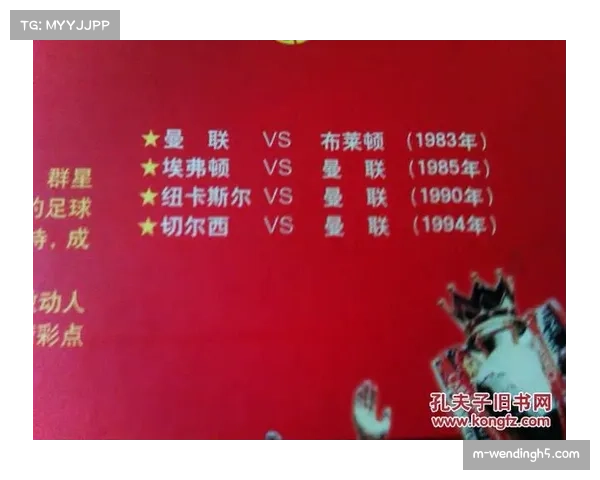 TG: MYYJJPP
★曼 联 VS 布莱顿 (1983年)
★埃弗顿 VS 曼 联 (1985年)
★纽卡斯尔 VS 曼 联 (1990年)
★切尔西 VS 曼 联 (1994年)
群星
的足球
，成
动人
彩点
孔夫子旧书网
www.kongfz.com
m-wendingh5.com